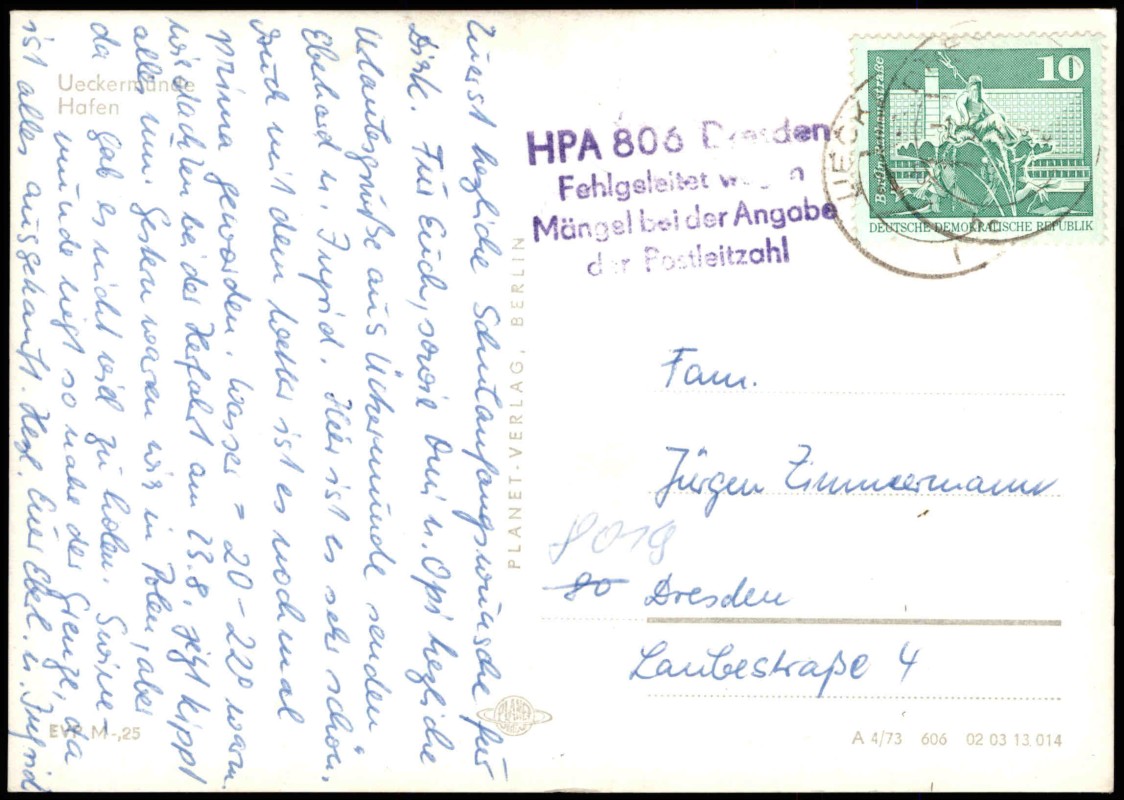 Ueckermünde
Hafen
Zuerst herzliche Schulanfangswünsche für
Dirk. Für Euch, sowie Omi u. Opi herzliche
Urlaubsgrüße aus Ückermünde senden
Eberhard u. Ingrid. Hier ist es sehr schön.
Auch mit dem Wetter ist es nochmal
prima geworden. Wasser = 20-22° warm.
wie dachten bei der Herfahrt am 23.8. jetzt kippt
alles um. Gestern waren wir in Polen, aber
da gab es nicht viel zu holen. Swine-
münde liegt so nahe der Grenze, da
ist alles ausgekauft. Herzl. Eure Eberh. u. Ingrid
EVP M -,25
PLANET-VERLAG, BERLIN
HPA 806 Dresden
Fehlgeleitet wegen
Mängel bei der Angabe
der Postleitzahl
10
DEUTSCHE DEMOKRATISCHE REPUBLIK
Fam.
Jürgen Zimmermann
8019
80 Dresden
Laubestraße 4
PLANET
A 4/73 606 02 03 13 014